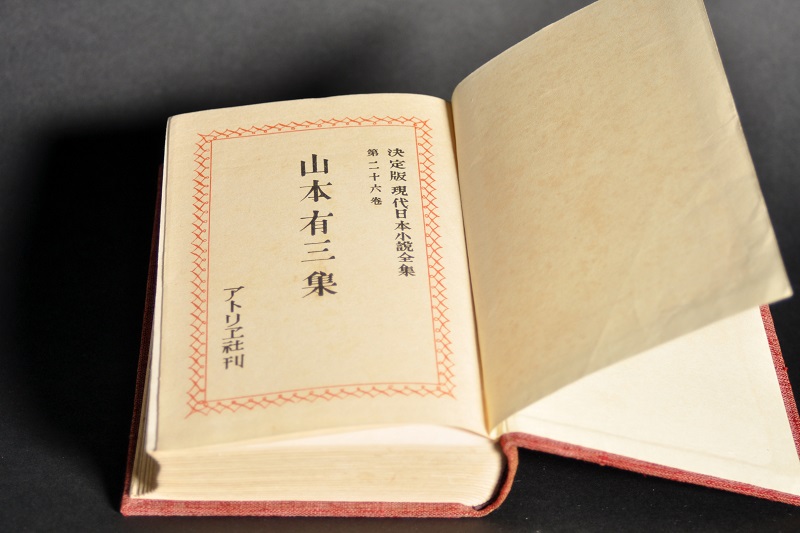 決定版 現代日本小説全集
第二十六巻
山本有三集
アトリヱ社刊